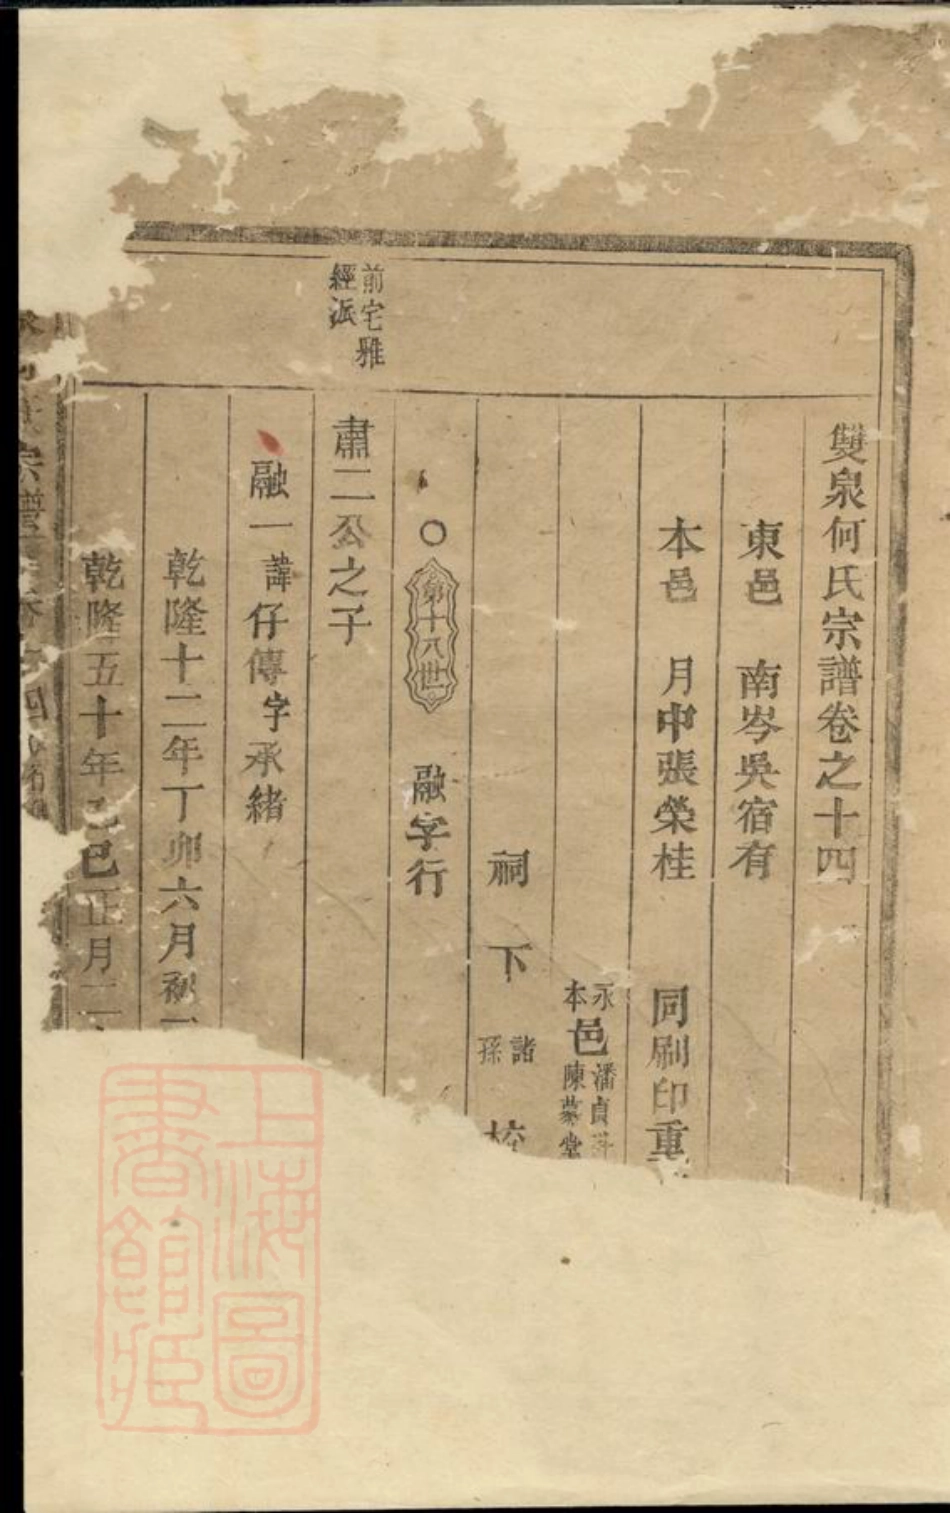 雙泉何氏宗譜卷之十四
東邑 南岑吳宿有
本邑 月中張榮桂 同刷印重
永
本
邑
潘貞
陳慕堂
祠下
諸
孫
○ 第十八世 融字行
前宅雅
經派
肅二公之子
融一 諱仔傳 字承緒
乾隆十二年丁卯六月初
乾隆五十年乙巳正月二
宗譜
上海圖
書館藏